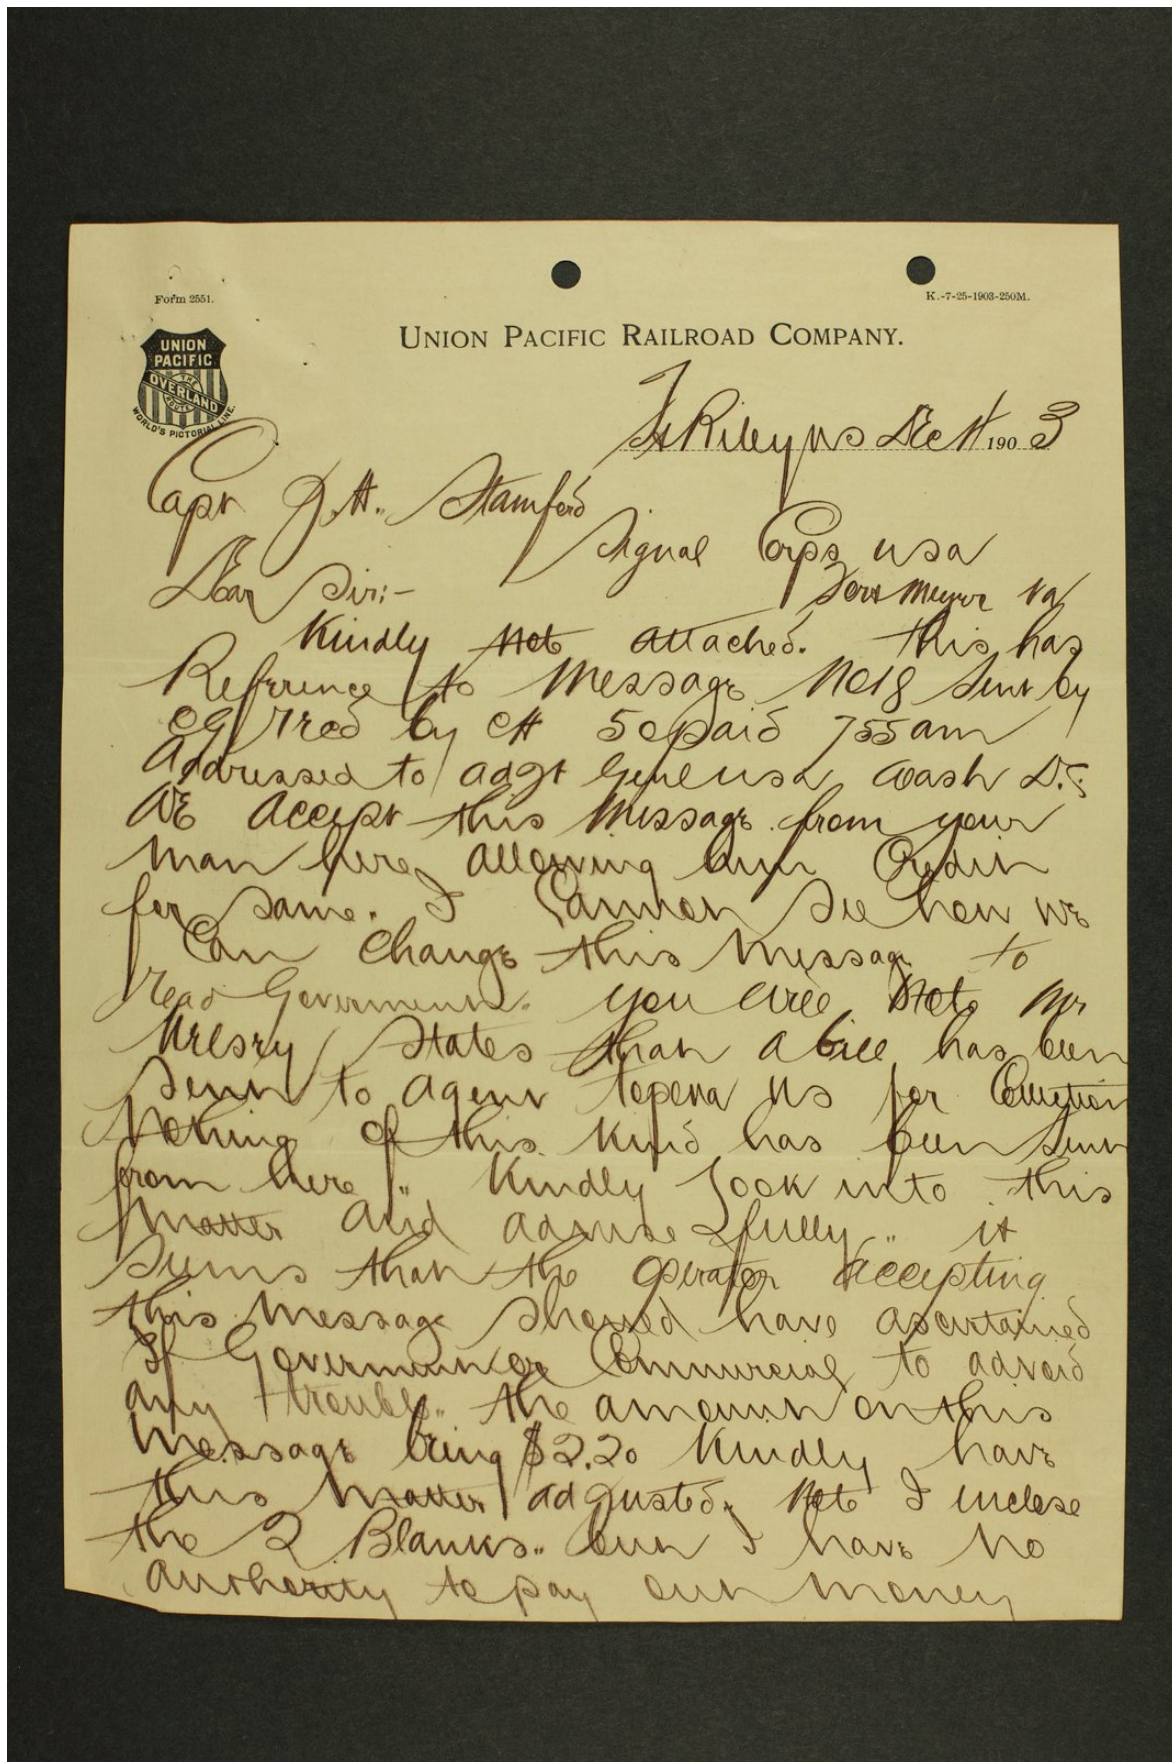 Form 2551.
K.-7-25-1903-250M.
UNION PACIFIC
THE OVERLAND ROUTE
WORLD'S PICTORIAL LINE.
UNION PACIFIC RAILROAD COMPANY.
Ft Riley Ks Dec 11 1903
Capt D.H. Stamford
Signal Corps usa
Dear Sir:-
Fort Meyer Va
Kindly Note attached. This has
Refrence to Message No 18 Sent by
CG Rred by CH 50 paid 755 am
Addressed to adgt Genl usa Wash D.C.
We Accept this Message from your
Man here allowing him Credit
for same. I Cannot See how we
Can Change this Message to
read Government. you will Note Mr
States that a bill has been
Sent to agent Topeka Ks for Collection
Nothing of this Kind has been Sent
from here " Kindly Look into this
Matter and advise fully " it
Seems that the operator accepting
this Message Should have ascertained
If Government or Commercial to advoid
any trouble " the amount on this
Message being $2.20 Kindly have
this Matter adgusted. Note I inclose
the 2 Blanks " but I have No
Authority to pay out Money